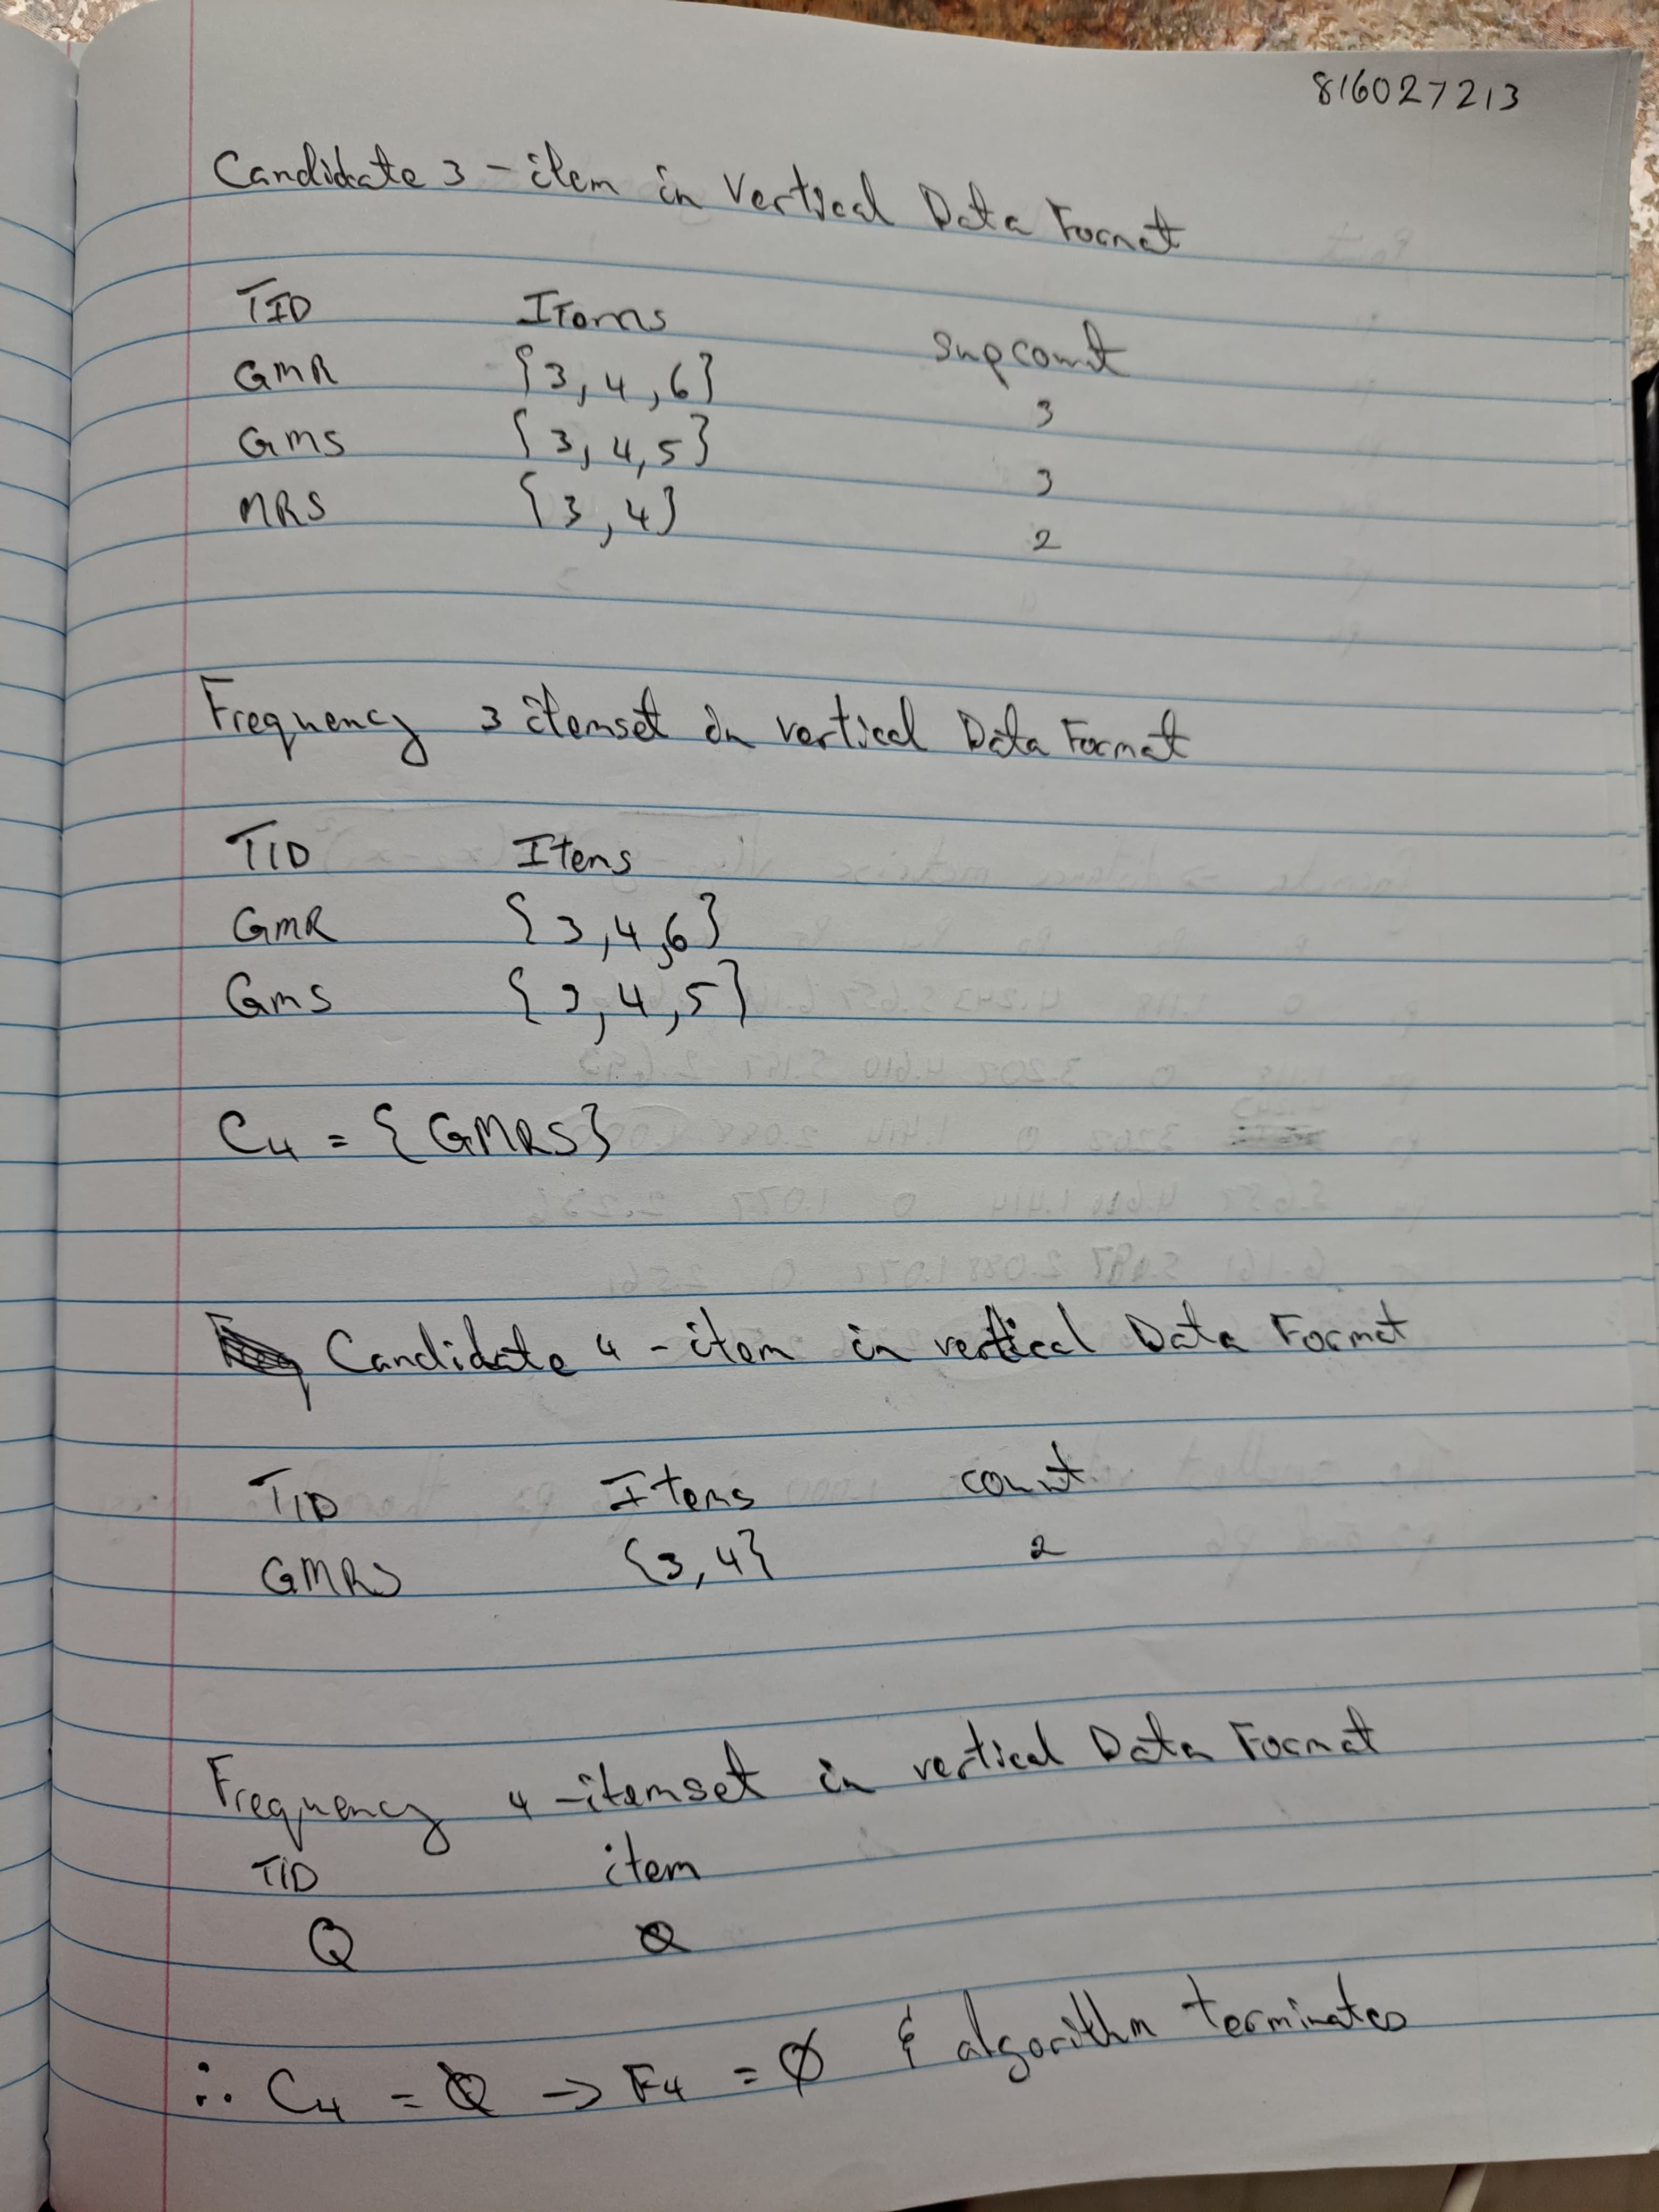 816027213
Candidate 3 - item in Vertical Data Format
TID Items supcount
GMR {3, 4, 6} 3
GMS {3, 4, 5} 3
MRS {3, 4} 2
Frequency 3 itemset in vertical Data Format
TID Items
GMR {3, 4, 6}
GMS {3, 4, 5}
C4 = {GMRS}
Candidate 4 - item in vertical Data Format
TID Items count
GMRS {3, 4} 2
Frequency 4 - itemset in vertical Data Format
TID item
∅ ∅
∴ C4 = ∅ → F4 = ∅ & algorithm terminates